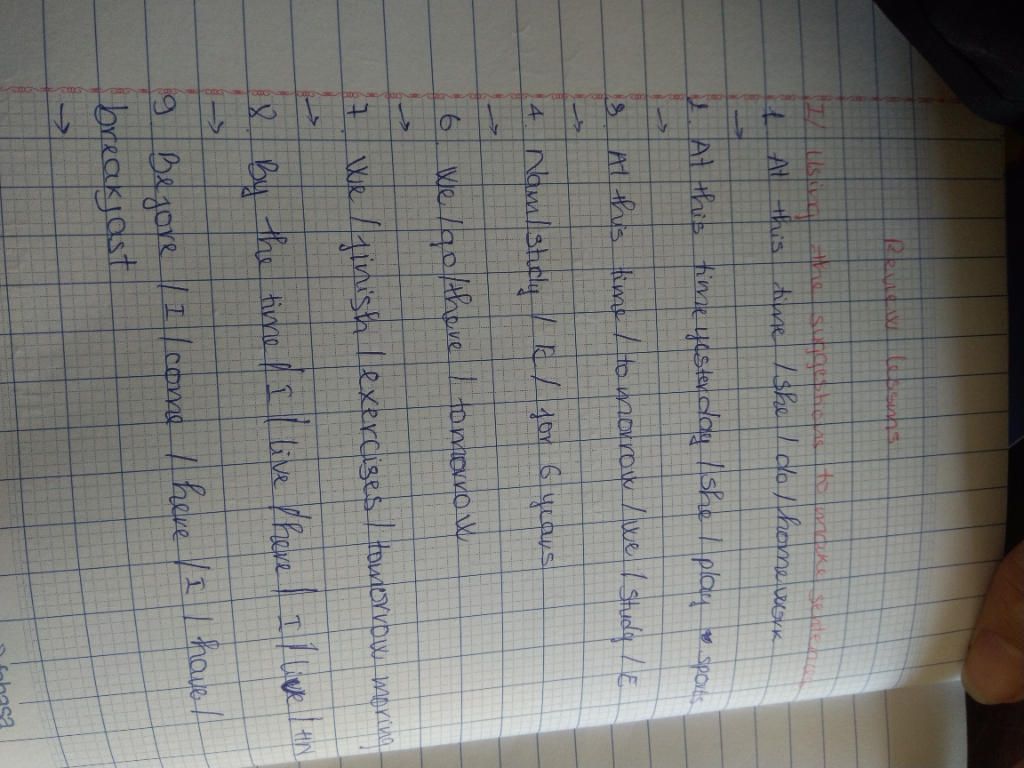 Review lessons
I/ Using the suggestions to make sentences
1. At this time / she / do / homework
→
2. At this time yesterday / she / play sports
→
3 At this time / tomorrow / we / study / E
→
4. Nam / study / E / for 6 years
→
6 We / go / there / tomorrow
→
7. We / finish / exercises / tomorrow moring
→
8. By the time / I / live / here / I / live / HN
→
9 Before / I / come / here / I / have /
breakfast
→